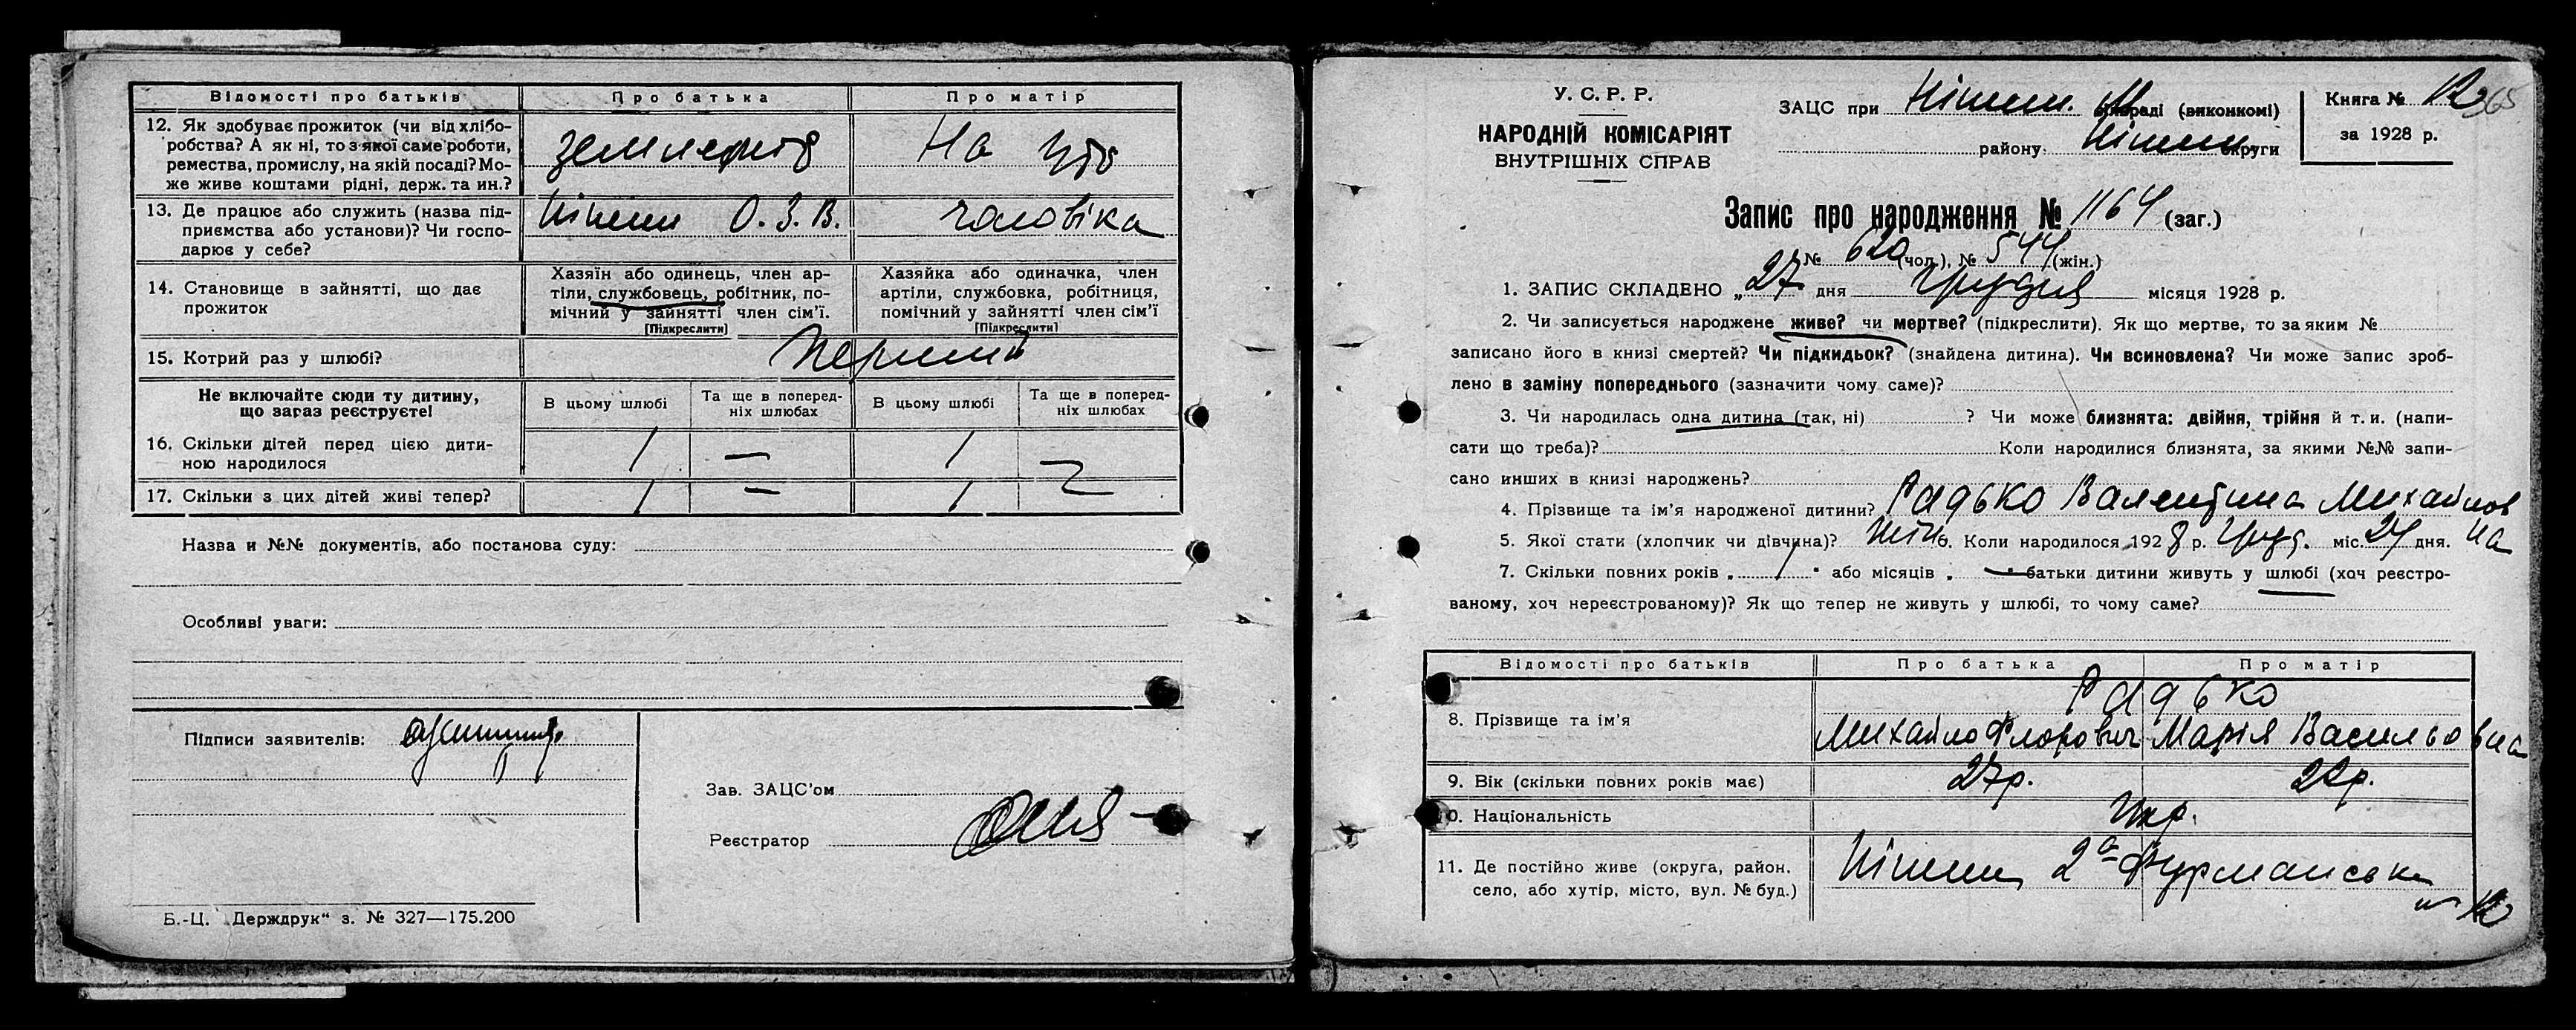 Відомості про батьків Про батька Про матір
12. Як здобуває прожиток (чи від хлібо-
робства? А як ні, то з якої саме роботи,
ремества, промислу, на якій посаді? Мо-
же живе коштами рідні, держ. та ин.?
На утр
13. Де працює або служить (назва під-
приємства або установи)? Чи госпо-
дарює у себе?
Ніжин О. З. В. чоловіка
14. Становище в зайнятті, що дає
прожиток
Хазяїн або одинець, член ар-
тілі, службовець, робітник, по-
мічний у зайнятті член сім'ї.
[Підкреслити]
Хазяйка або одиначка, член
артілі, службовка, робітниця,
помічний у зайнятті член сім'ї
[Підкреслити]
15. Котрий раз у шлюбі? Перший
Не включайте сюди ту дитину,
що зараз реєструєте!
В цьому шлюбі
Та ще в поперед-
ніх шлюбах
В цьому шлюбі
Та ще в поперед-
ніх шлюбах
16. Скільки дітей перед цією дити-
ною народилося
1 — 1 —
17. Скільки з цих дітей живі тепер? 1 — 1 —
Назва и №№ документів, або постанова суду:
Особливі уваги:
Підписи заявителів:
Зав. ЗАЦС'ом
Реєстратор
Б.-Ц. „Держдрук“ з. № 327—175.200
У. С. Р. Р.
НАРОДНІЙ КОМІСАРІЯТ
ВНУТРІШНІХ СПРАВ
ЗАЦС при Ніжин. М раді (виконкомі)
району Ніжин. округи
Книга № 12
за 1928 р.
365
Запис про народження № 1164 (заг.)
№ 620 (чол.), № 544 (жін.)
1. ЗАПИС СКЛАДЕНО „27 дня Грудня місяця 1928 р.
2. Чи записується народжене живе? чи мертве? (підкреслити). Як що мертве, то за яким №
записано його в книзі смертей? Чи підкидьок? (знайдена дитина). Чи всиновлена? Чи може запис зроб-
лено в заміну попереднього (зазначити чому саме)?
3. Чи народилась одна дитина (так, ні) ? Чи може близнята: двійня, трійня й т. и. (напи-
сати що треба)? Коли народилися близнята, за якими №№ запи-
сано инших в книзі народжень?
4. Прізвище та ім'я народженої дитини? Радько Валентина Михайлов
на
5. Якої стати (хлопчик чи дівчина)? жін 6. Коли народилося 1928 р. Груд. міс. 24 дня.
7. Скільки повних років „ 1 “ або місяців „ — “ батьки дитини живуть у шлюбі (хоч реєстро-
ваному, хоч нереєстрованому)? Як що тепер не живуть у шлюбі, то чому саме?
Відомості про батьків Про батька Про матір
8. Прізвище та ім'я
Радько
Михайло Флорович Марія Васильовна
9. Вік (скільки повних років має) 27 р. 22 р.
10. Національність Укр.
11. Де постійно живе (округа, район,
село, або хутір, місто, вул. № буд.)
Ніжин 2а Фурманська